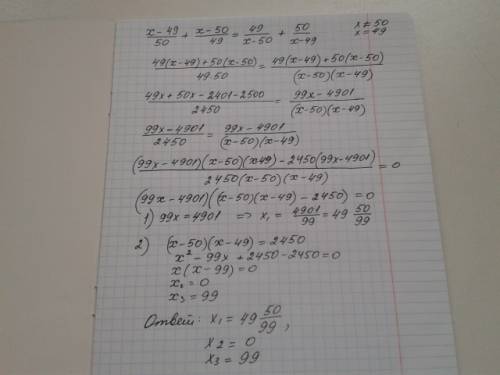 (x-49)/50 + (x-50)/49 = 49/(x-50) + 50/(x-49)    x≠50
x=49
(49(x-49)+50(x-50))/(49·50) = (49(x-49)+50(x-50))/((x-50)(x-49))
(49x+50x-2401-2500)/2450 = (99x-4901)/((x-50)(x-49))
(99x-4901)/2450 = (99x-4901)/((x-50)(x-49))
((99x-4901)(x-50)(x-49)-2450(99x-4901))/(2450(x-50)(x-49)) = 0
(99x-4901)((x-50)(x-49)-2450)=0
1) 99x=4901 => x₁ = 4901/99 = 49 50/99
2) (x-50)(x-49)=2450
x²-99x+2450-2450=0
x(x-99)=0
x₂=0
x₃=99
Ответ: x₁=49 50/99,
x2=0
x3=99